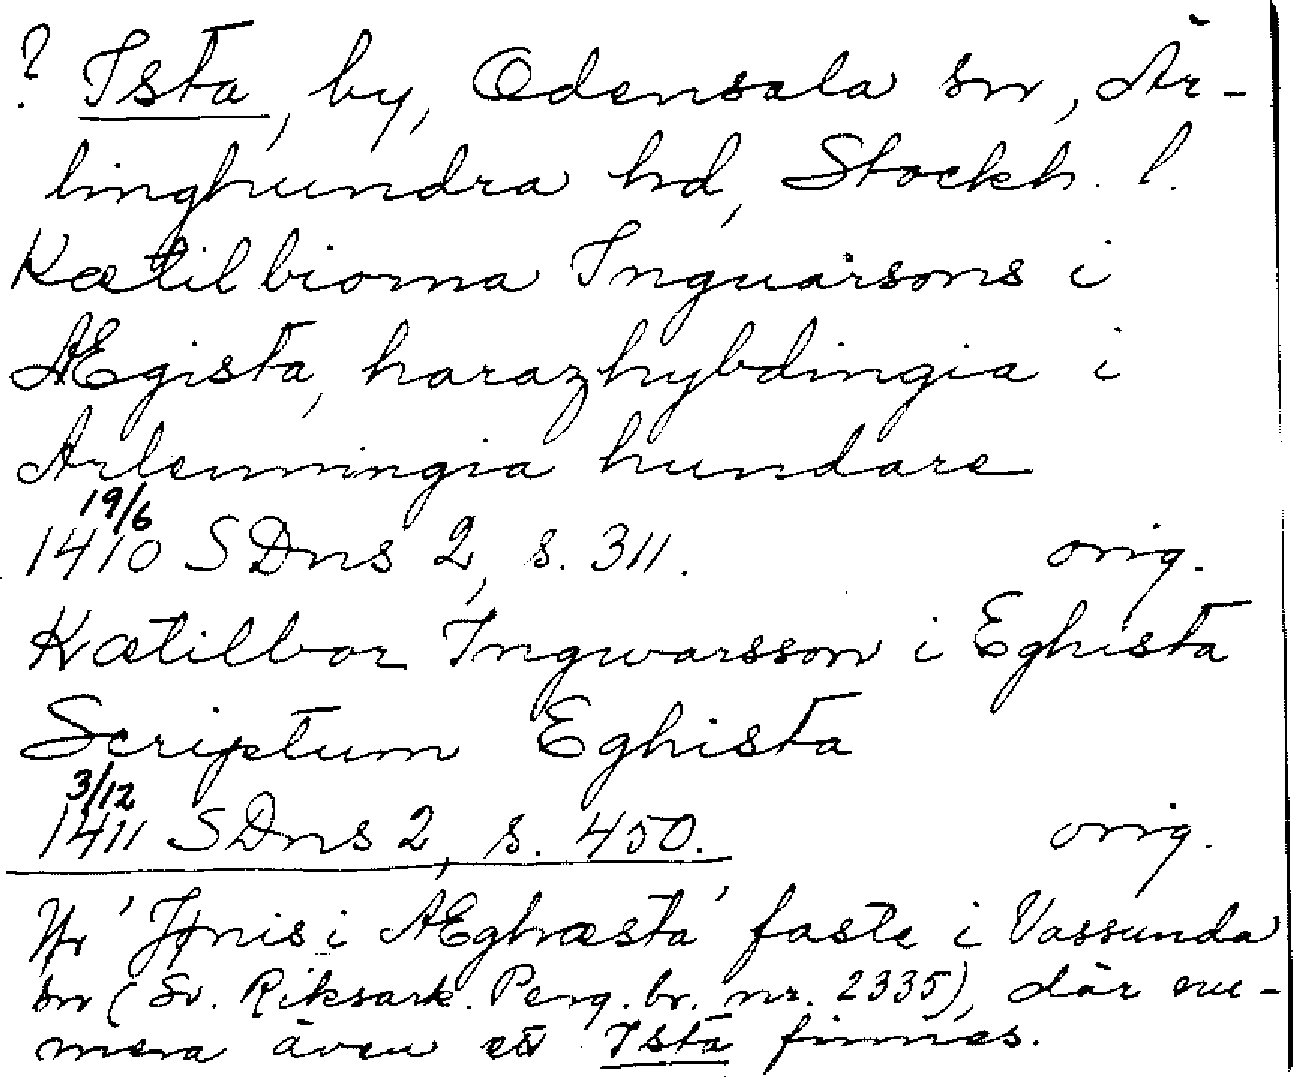 ? Ista, by, Odensala sn, Är-
linghundra hd, Stockh. l.
Kætilbiorna Inguarsons i
Ægista, harazhybdingia i
Arlenningia hundare
19/6
1410 SDns 2, s. 311. orig.
Kætilbor Ingwarsson i Eghista
Scriptum Eghista
3/12
1411 SDns 2, s. 450. orig.
Jfr 'Jønis i Æghæsta' faste i Vassunda
sn (Sv. Riksark. Perg. br. nr. 2335), där nu-
mera även ett Ista finnes.